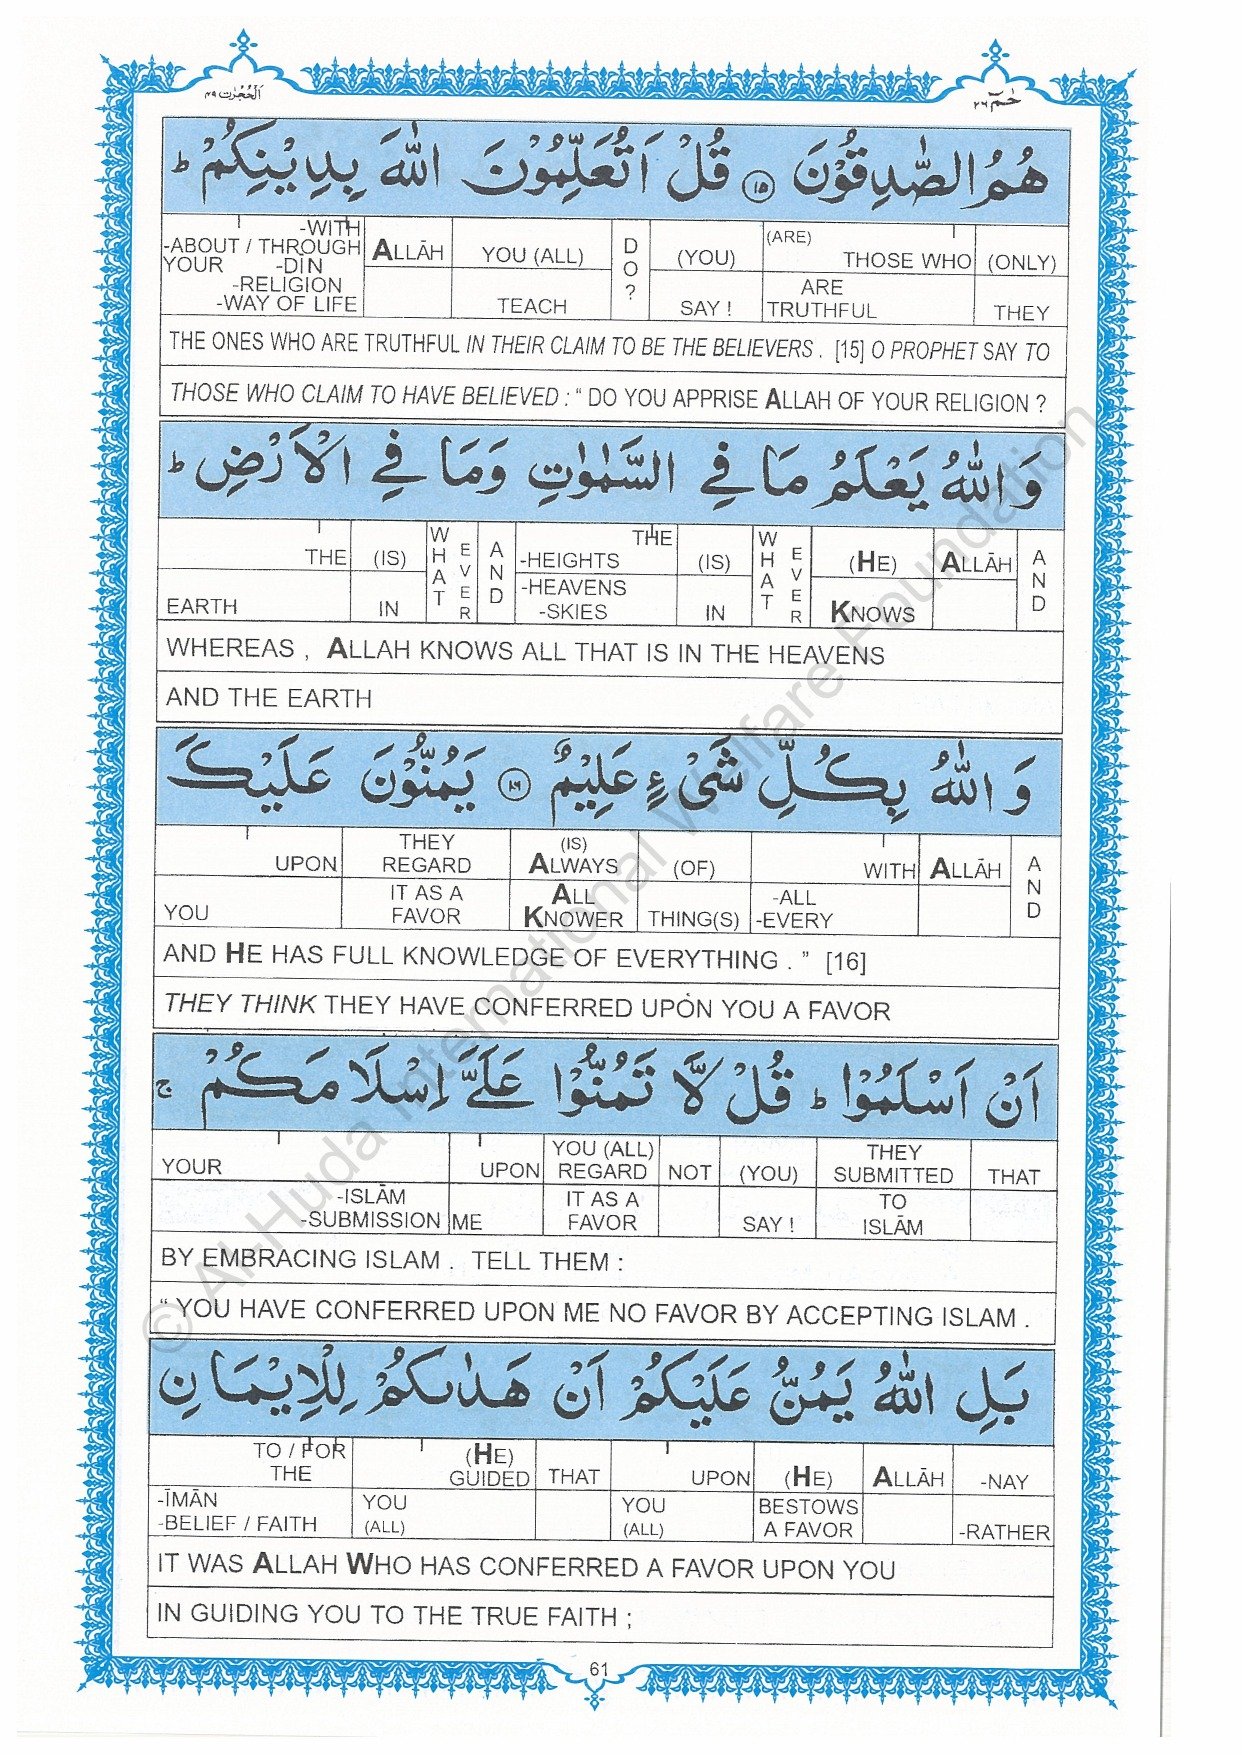 اَلْحُجُرٰت ٤٩
حٰمٓ ٢٦
هُمُ الصّٰدِقُوْنَ ۝١٥ قُلْ اَتُعَلِّمُوْنَ اللّٰهَ بِدِيْنِكُمْ ؕ
-WITH
-ABOUT / THROUGH ALLĀH YOU (ALL) DO? (YOU) (ARE) THOSE WHO (ONLY)
YOUR -DĪN
-RELIGION ARE
-WAY OF LIFE TEACH SAY ! TRUTHFUL THEY
THE ONES WHO ARE TRUTHFUL IN THEIR CLAIM TO BE THE BELIEVERS . [15] O PROPHET SAY TO
THOSE WHO CLAIM TO HAVE BELIEVED : “ DO YOU APPRISE ALLAH OF YOUR RELIGION ?
وَ اللّٰهُ يَعْلَمُ مَا فِي السَّمٰوٰتِ وَمَا فِي الْاَرْضِ ؕ
THE (IS) WHAT EVER AND THE (IS) WHAT EVER (HE) ALLĀH AND
-HEIGHTS
-HEAVENS
EARTH IN -SKIES IN KNOWS
WHEREAS , ALLAH KNOWS ALL THAT IS IN THE HEAVENS
AND THE EARTH
وَ اللّٰهُ بِكُلِّ شَيْءٍ عَلِيْمٌ ۝١٦ يَمُنُّوْنَ عَلَيْكَ
THEY (IS)
UPON REGARD ALWAYS (OF) WITH ALLĀH AND
IT AS A ALL -ALL
YOU FAVOR KNOWER THING(S) -EVERY
AND HE HAS FULL KNOWLEDGE OF EVERYTHING . ” [16]
THEY THINK THEY HAVE CONFERRED UPON YOU A FAVOR
اَنْ اَسْلَمُوْا ؕ قُلْ لَّا تَمُنُّوْا عَلَيَّ اِسْلَامَكُمْ ۚ
YOU (ALL) THEY
YOUR UPON REGARD NOT (YOU) SUBMITTED THAT
-ISLĀM IT AS A TO
-SUBMISSION ME FAVOR SAY ! ISLĀM
BY EMBRACING ISLAM . TELL THEM :
“ YOU HAVE CONFERRED UPON ME NO FAVOR BY ACCEPTING ISLAM .
بَلِ اللّٰهُ يَمُنُّ عَلَيْكُمْ اَنْ هَدٰىكُمْ لِلْاِيْمَانِ
TO / FOR (HE)
THE GUIDED THAT UPON (HE) ALLĀH -NAY
-ĪMĀN YOU YOU BESTOWS
-BELIEF / FAITH (ALL) (ALL) A FAVOR -RATHER
IT WAS ALLAH WHO HAS CONFERRED A FAVOR UPON YOU
IN GUIDING YOU TO THE TRUE FAITH ;
61
© Al-Huda International Welfare Foundation